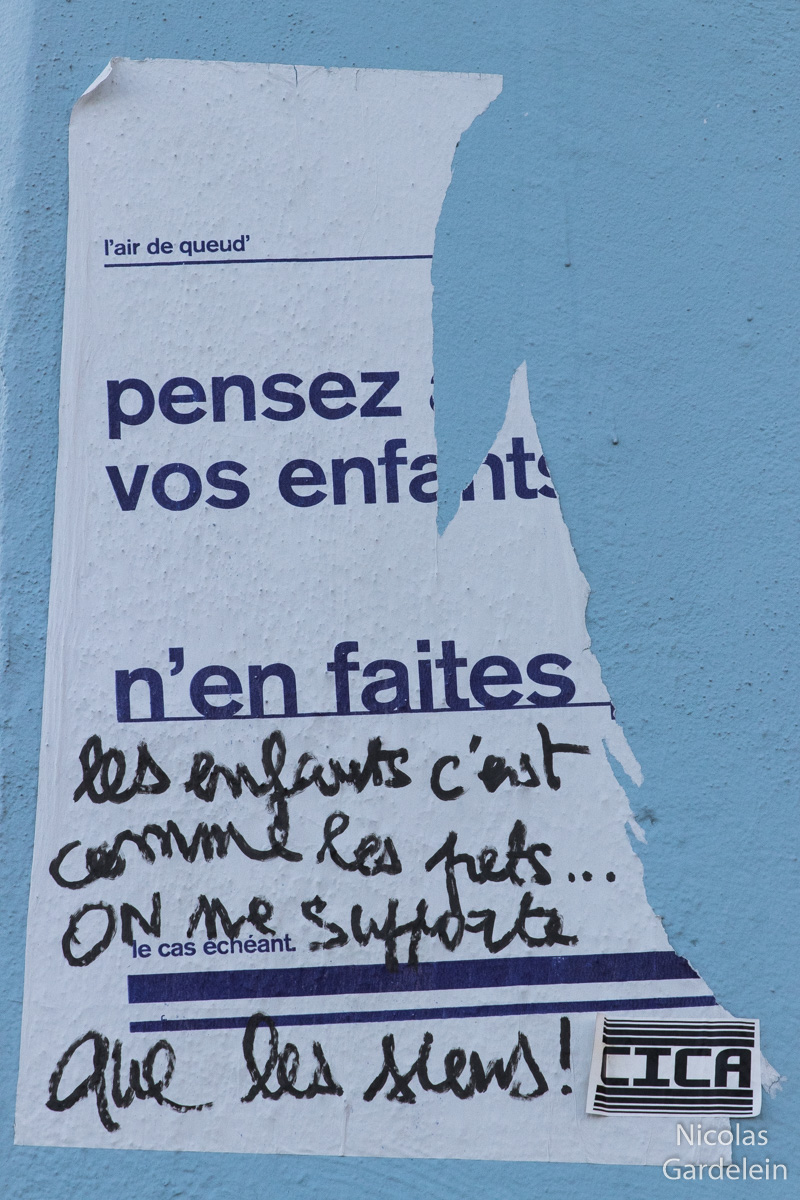 l'air de queud'
pensez
vos enfants
n'en faites
les enfants c'est
comme les pets...
ON ne supporte
le cas échéant.
que les siens!
CICA
Nicolas
Gardelein